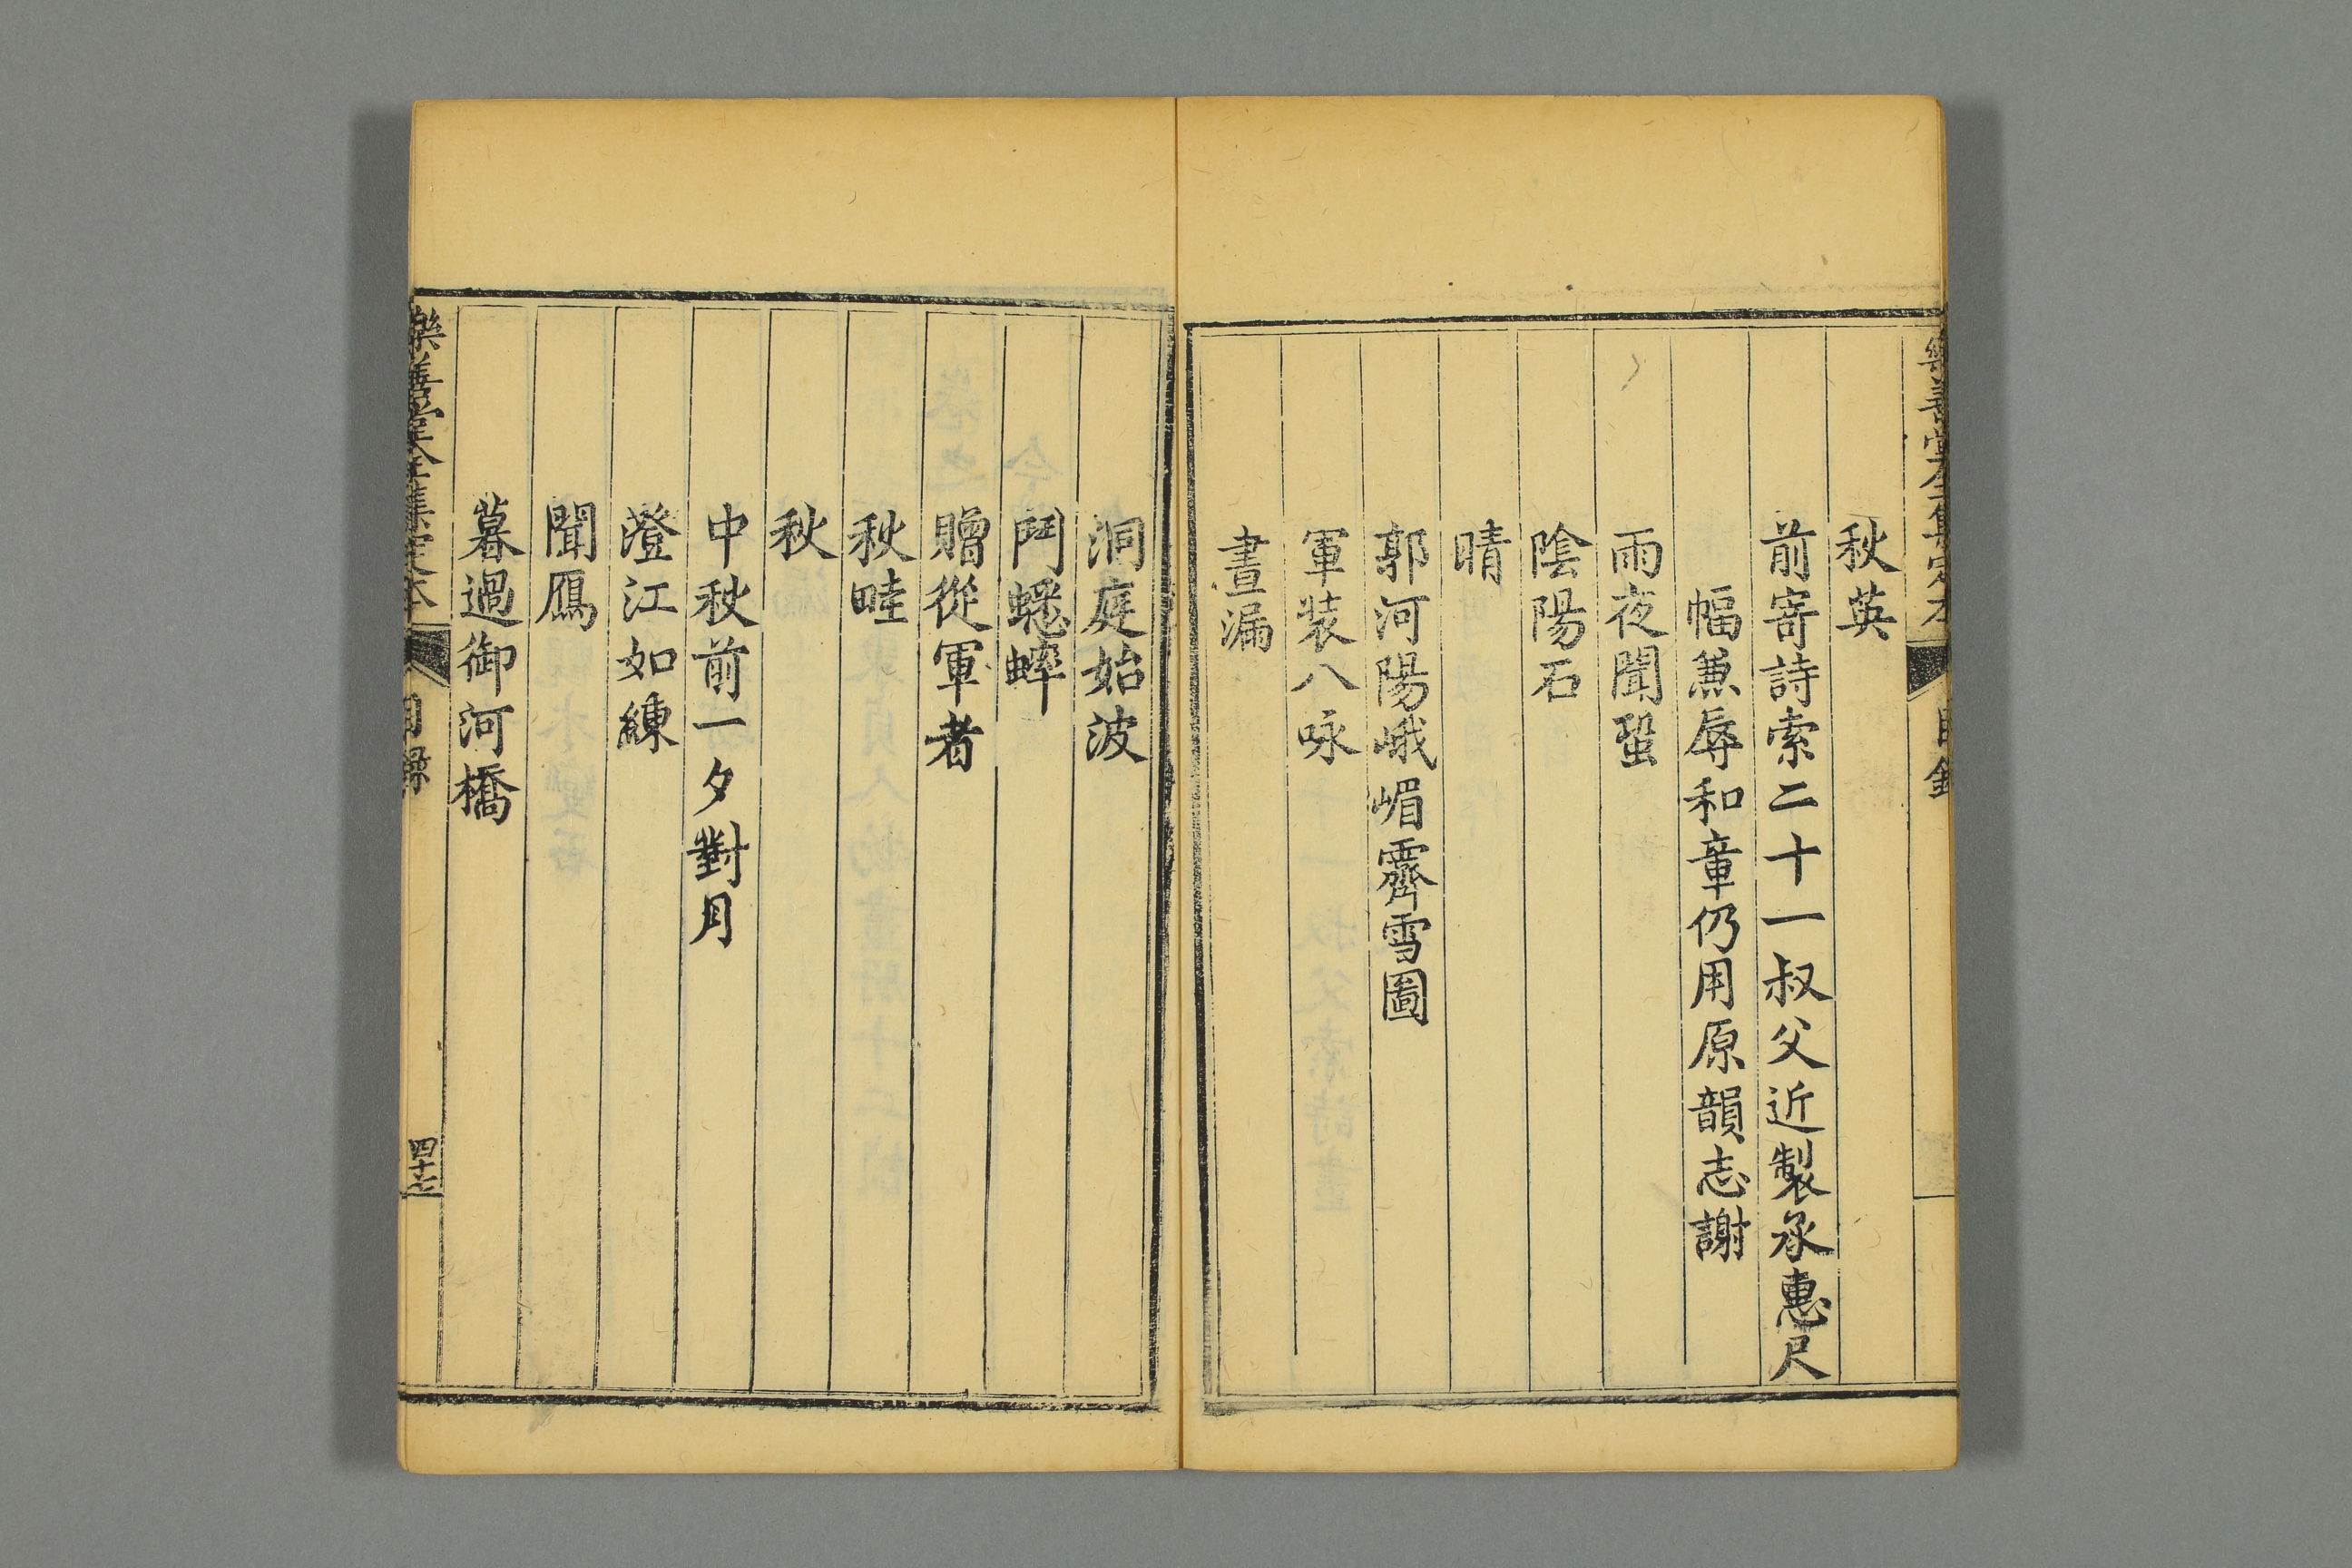 秋英
前寄詩索二十一叔父近製承惠尺
幅兼辱和章仍用原韻志謝
雨夜聞蛩
陰陽石
晴
郭河陽峨嵋霽雪圖
軍装八咏
晝漏
洞庭始波
鬥蟋蟀
贈從軍者
秋畦
秋
中秋前一夕對月
澄江如練
聞鴈
暮過御河橋
樂善堂全集定本
目錄
四十七